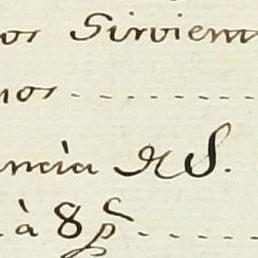 os Sirvient
nos
ncia de S.
à 8 p^s